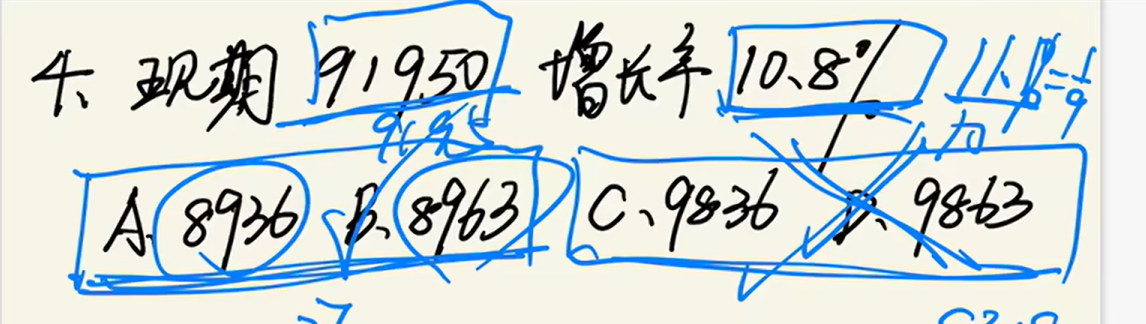 4、现期 91950 增长率 10.8% 11.1%=1/9
A. 8936 B、8963 C、9836 D、9863